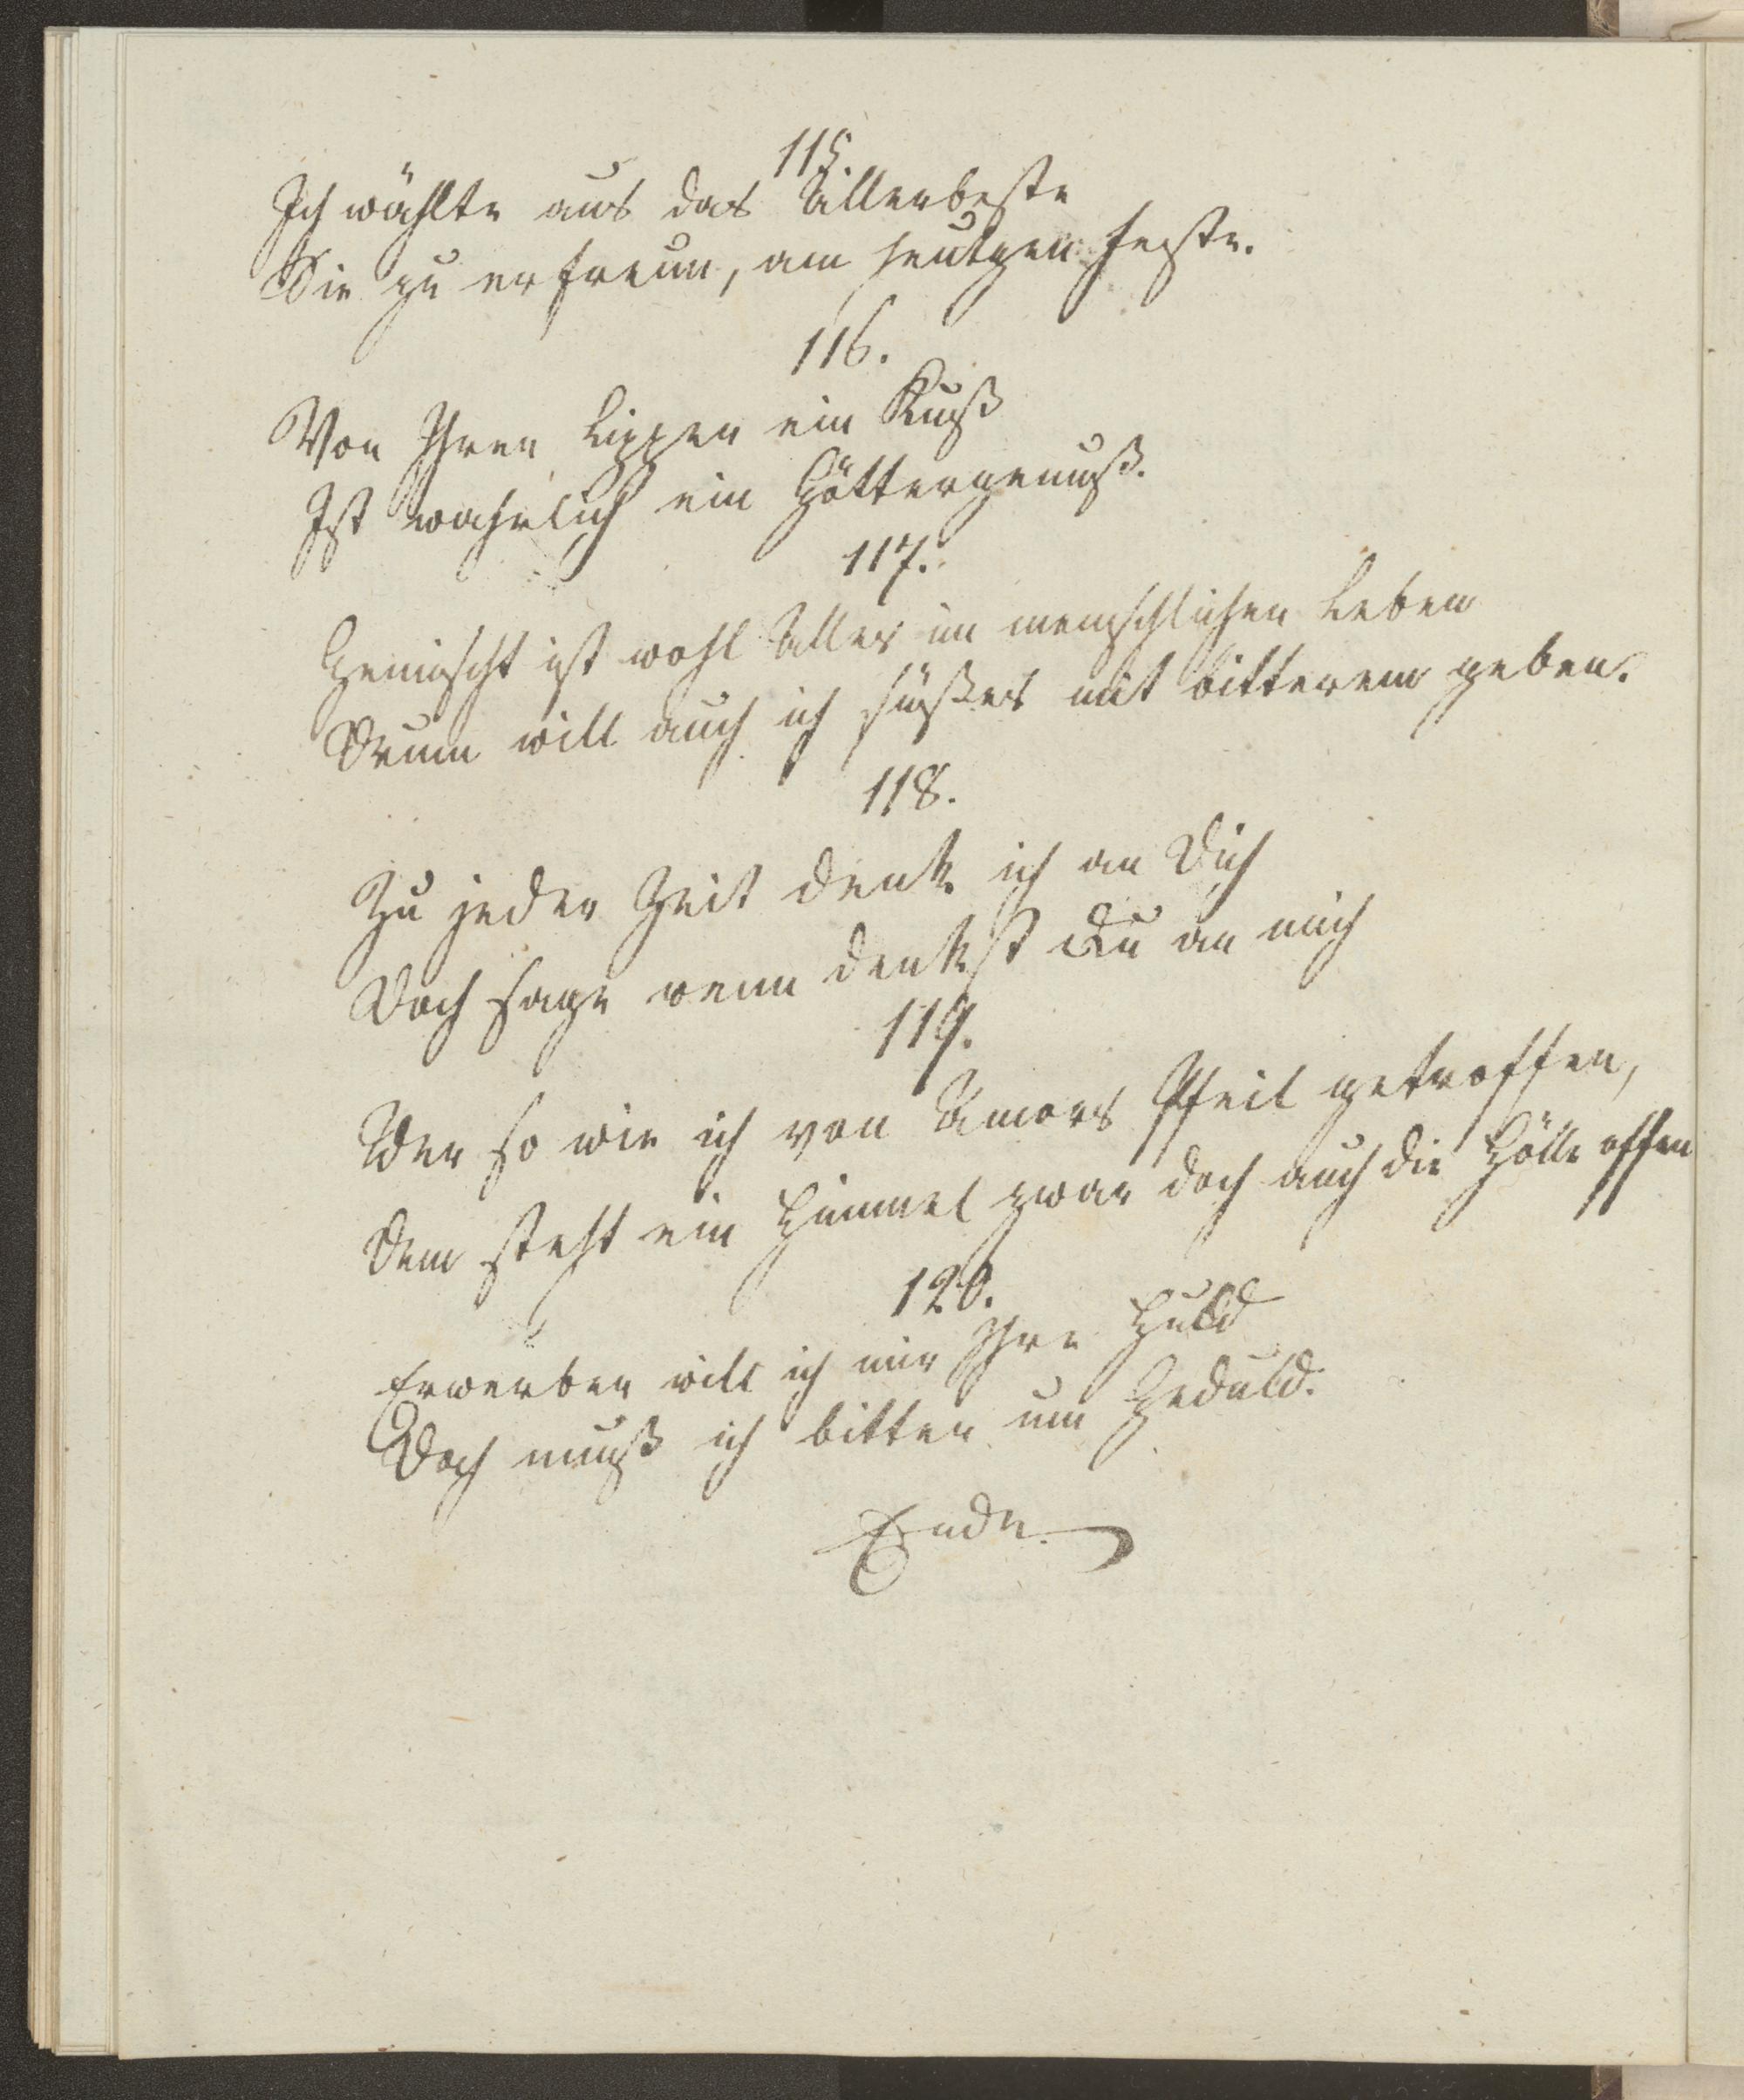 115.
Ich wählte aus das Allerbeste
Sie zu erfreun, am heutgen Feste.
116.
Von Ihren Lippen ein Kuß
Ist wahrlich ein Göttergenuß.
117.
Gemischt ist wohl Alles im menschlichen Leben
Drum will auch ich süßes mit bitterem geben.
118.
Zu jeder Zeit denk ich an Dich
Doch sage wenn denkst Du an mich
119.
Wer so wie ich von Amors Pfeil getroffen,
Dem steht ein Himmel zwar doch auch die Hölle offen
120.
Erwerben will ich mir Ihre Huld
Doch muß ich bitten um Geduld.
Ende.